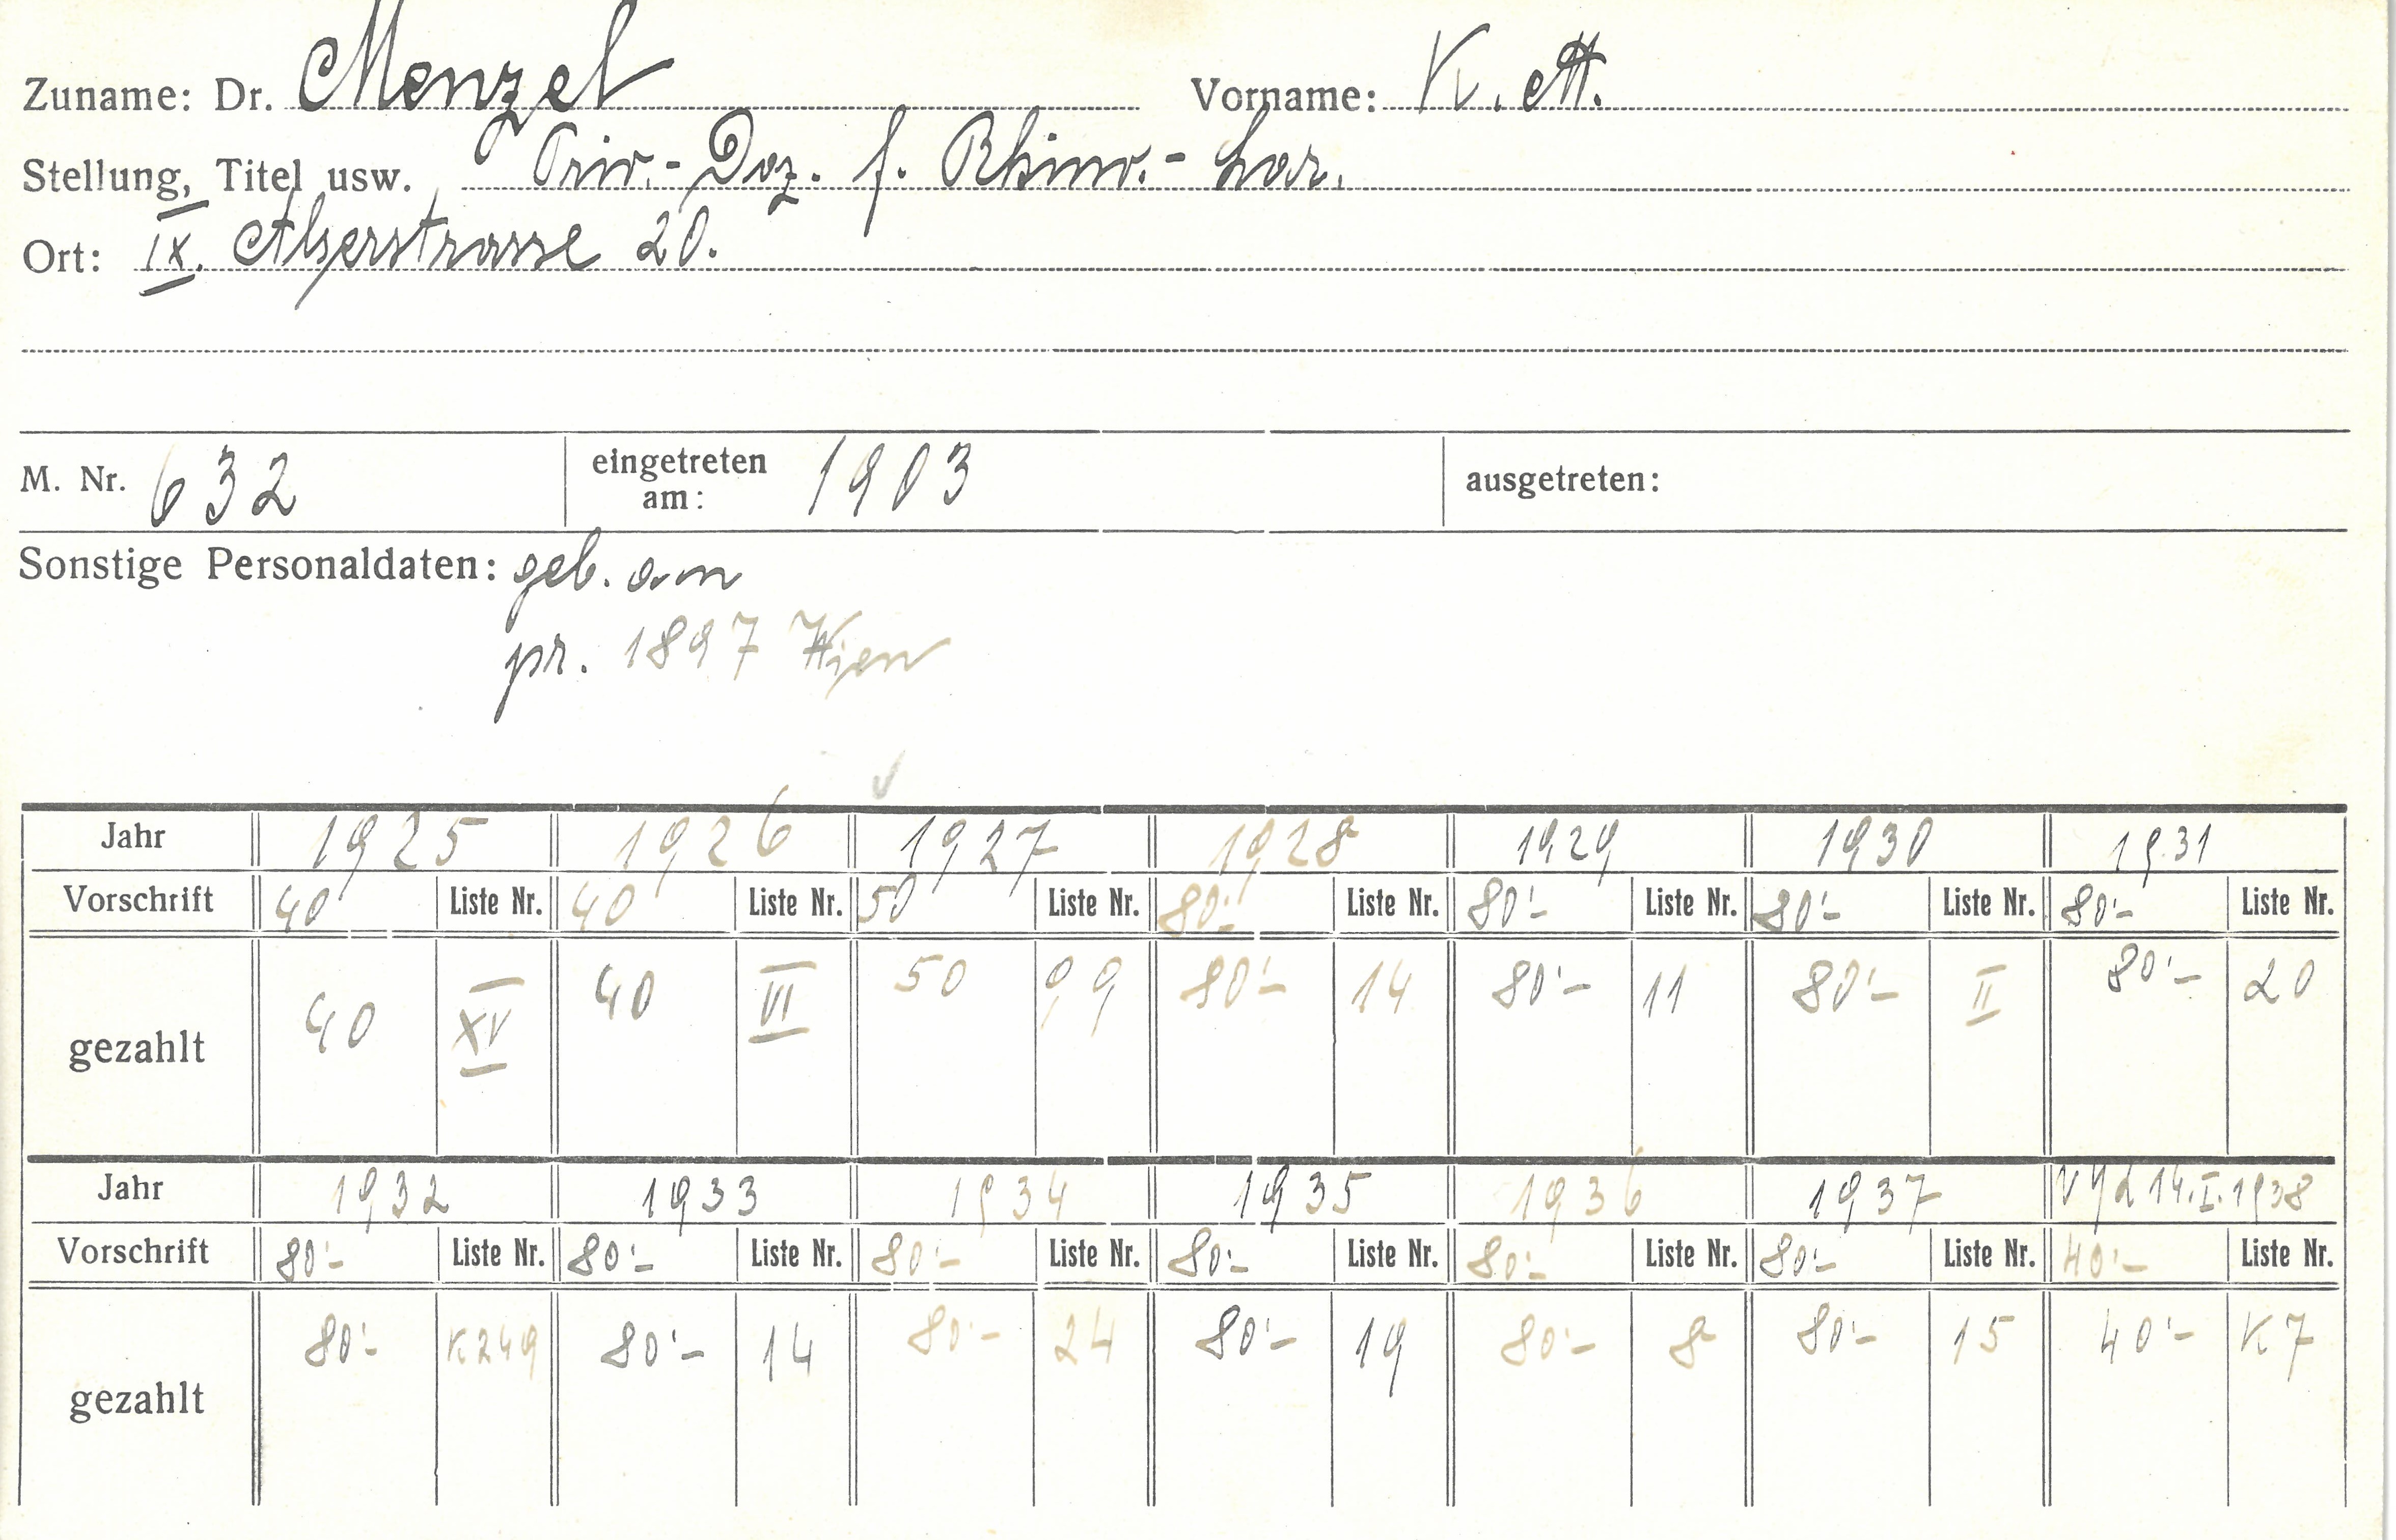 Zuname: Dr. Menzel Vorname: K. M.
Stellung, Titel usw. Priv.-Doz. f. Rhino.-Lar.
Ort: IX. Alserstrasse 20.
M. Nr. 632 eingetreten am: 1903 ausgetreten:
Sonstige Personaldaten: geb. am
pr. 1897 Wien
Jahr 1925 1926 1927 1928 1929 1930 1931
Vorschrift 40 Liste Nr. 40 Liste Nr. 50 Liste Nr. 80'- Liste Nr. 80'- Liste Nr. 80'- Liste Nr. 80'- Liste Nr.
gezahlt 40 XV 40 VI 50 99 80'- 14 80'- 11 80'- II 80'- 20
Jahr 1932 1933 1934 1935 1936 1937 14.I.1938
Vorschrift 80'- Liste Nr. 80'- Liste Nr. 80'- Liste Nr. 80'- Liste Nr. 80'- Liste Nr. 80'- Liste Nr. 40'- Liste Nr.
gezahlt 80'- K249 80'- 14 80'- 24 80'- 19 80'- 8 80'- 15 40'- K7